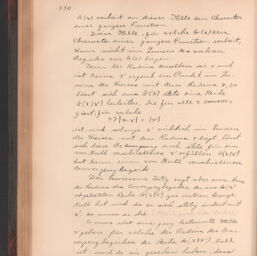 230
G(x) verliert an dieser Stelle den Charakter
einer ganzen Function.
Diese Stelle, für welche G(x) den
Charakter einer ganzen Function verliert,
kann nicht im Innern des wahren
Bezirks von G(x) liegen.
Denn der Radius desselben sei r und
ist ferner x' irgend ein Punkt im In-
nern des Kreises mit dem Radius r, so
lässt sich aus G(x) stets eine Reihe
G(x|x') herleiten, die für alle x conver-
girt, für welche
r > |x-x'| + |x'|
ist, und solange x' wirklich im Innern
des Kreises mit dem Radius r liegt, lässt
sich diese stets für ein
von Null verschiedenes x' erfüllen. G(x|x')
hat dann einen von Null verschiedenen
Convergenzbezirk.
Der bewiesene Satz sagt aber aus, dass
der Radius des Convergenzbezirks der aus G(x)
abgeleiteten Reihe G(x|x') eine untere Grenze
Null hat und da er sich stetig ändert mit
x', so muss es
Es muss also eine ganz bestimmte Stelle
x geben, für welche der Radius des Con-
vergenzbezirks der Reihe G(x|x') Null
ist, und da wir gesehen haben, dass